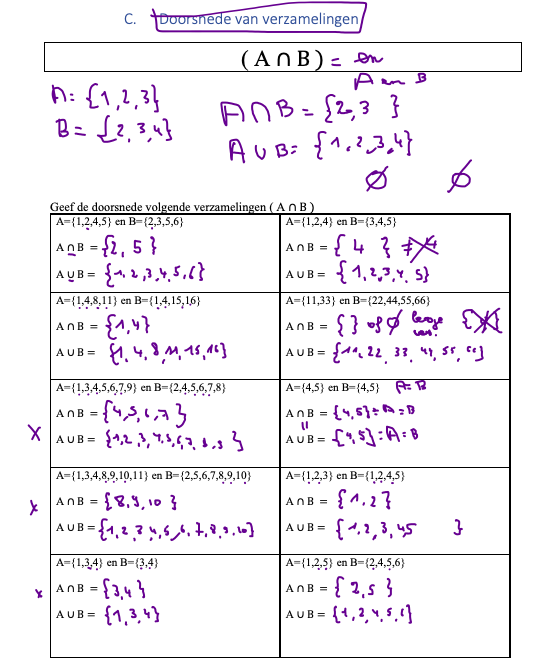 C. Doorsnede van verzamelingen
(A ∩ B) = en
A en B
A: {1,2,3}
B = {2,3,4}
A∩B = {2,3 }
A∪B = {1,2,3,4}
∅ ∅
Geef de doorsnede volgende verzamelingen ( A ∩ B )
A={1,2,4,5} en B={2,3,5,6}
A ∩ B = {2, 5 }
A ∪ B = {1,2,3,4,5,6}
A={1,2,4} en B={3,4,5}
A ∩ B = { 4 } ≠
A ∪ B = {1,2,3,4,5}
A={1,4,8,11} en B={1,4,15,16}
A ∩ B = {1,4}
A ∪ B = {1, 4, 8, 11, 15, 16}
A={11,33} en B={22,44,55,66}
A ∩ B = { } of ∅ lege ver.
A ∪ B = {11, 22, 33, 44, 55, 66}
A={1,3,4,5,6,7,9} en B={2,4,5,6,7,8}
A ∩ B = {4,5,6,7}
X A ∪ B = {1,2,3,4,5,6,7,8,9 }
A={4,5} en B={4,5} A=B
A ∩ B = {4,5} = A = B
A ∪ B = {4,5} = A = B
A={1,3,4,8,9,10,11} en B={2,5,6,7,8,9,10}
A ∩ B = {8,9,10 }
x A ∪ B = {1,2,3,4,5,6,7,8,9,10}
A={1,2,3} en B={1,2,4,5}
A ∩ B = {1,2}
A ∪ B = {1,2,3,45 }
A={1,3,4} en B={3,4}
A ∩ B = {3,4}
x A ∪ B = {1,3,4}
A={1,2,5} en B={2,4,5,6}
A ∩ B = { 2,5 }
A ∪ B = {1,2,4,5,6}